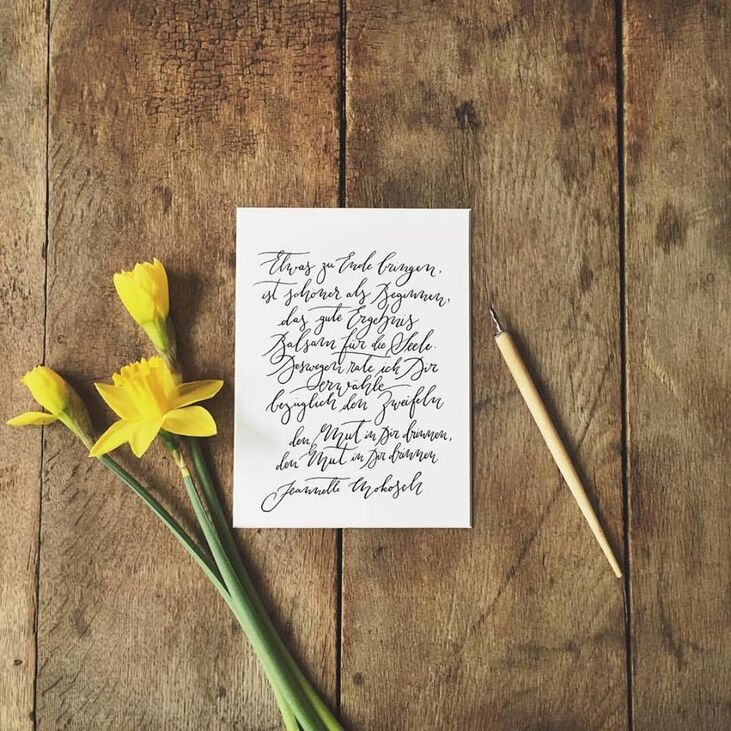 Etwas zu Ende bringen,
ist schöner als Beginnen,
das gute Ergebnis
Balsam für die Seele.
Deswegen rate ich Dir
erwähle
bezüglich den Zweifeln
den Mut in Dir drinnen,
den Mut in Dir drinnen
Jeannette Mokosch